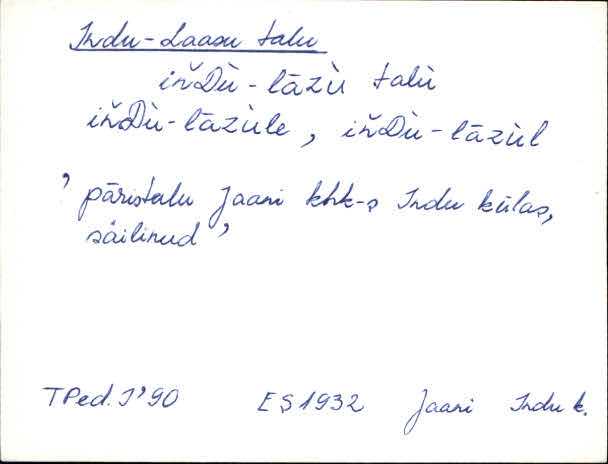 Indu-Laasu talu
iňDù-lāzù talù
iňDù-lāzùle, iňDù-lāzùl
' päristalu Jaani khk-s Indu külas,
säilinud '
TPed.I'90 ES 1932 Jaani Indu k.